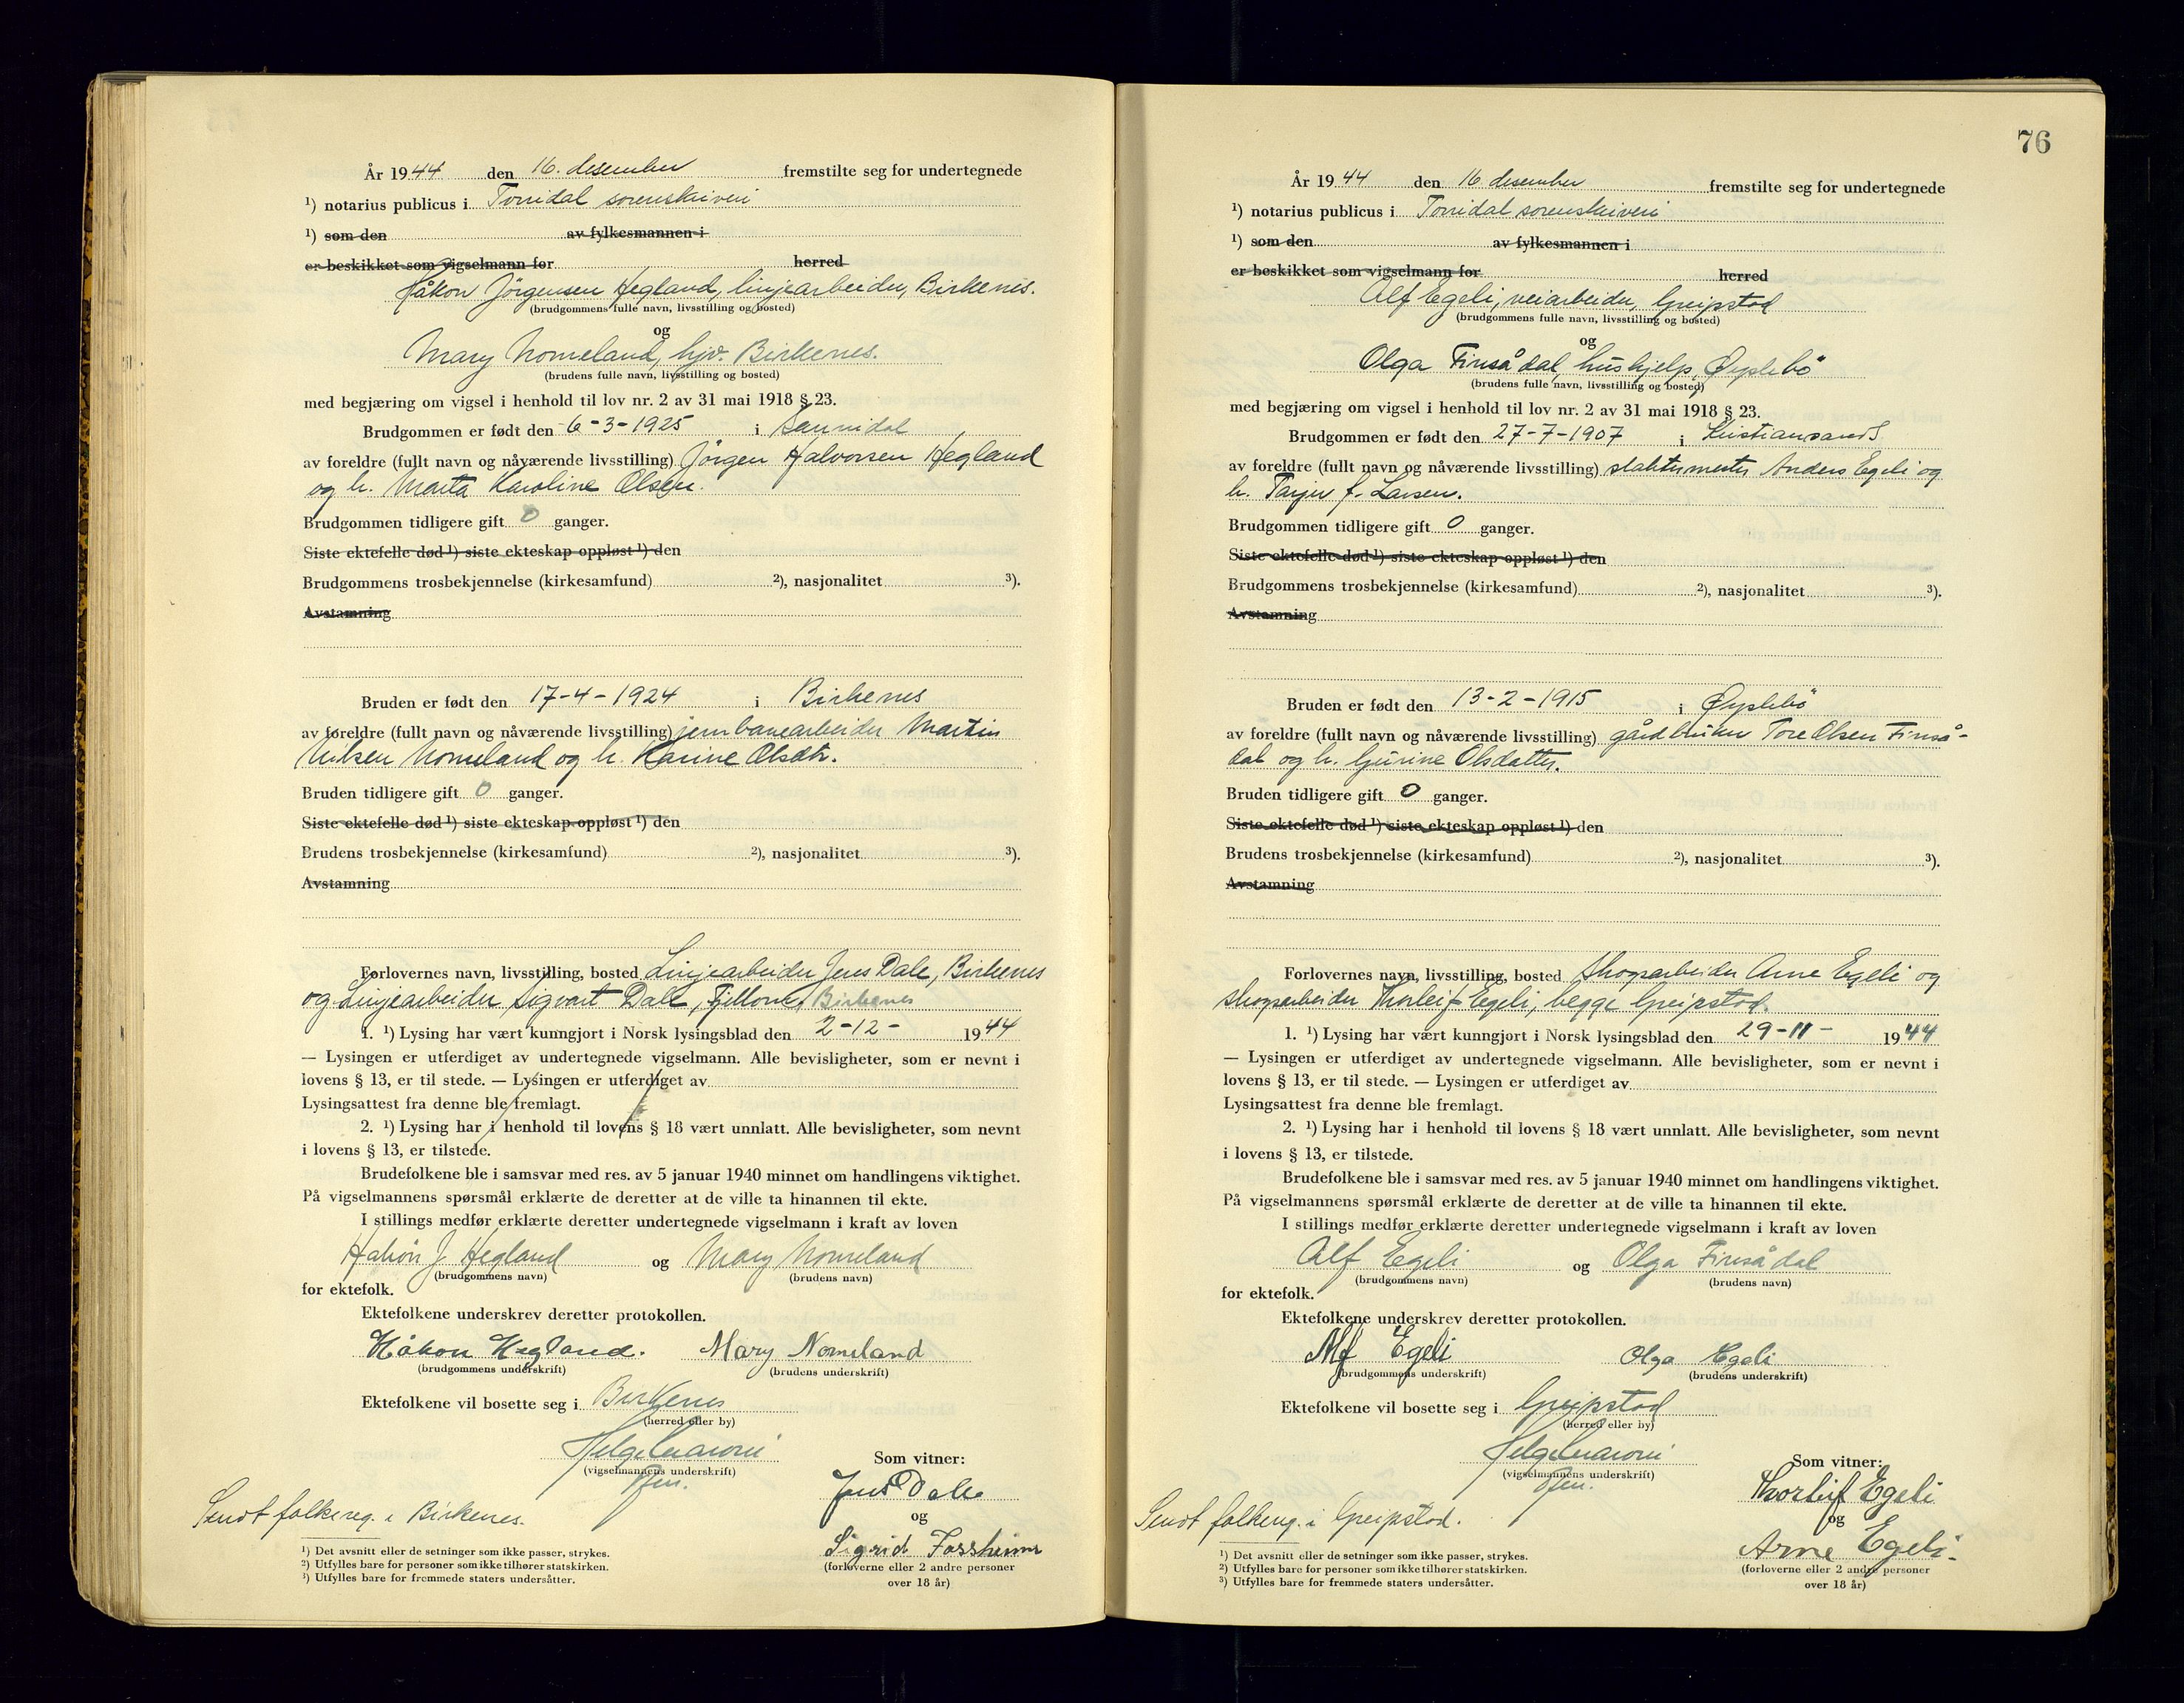 År 1944 den 16. desember fremstilte seg for undertegnede
¹) notarius publicus i Torridal sorenskriveri
¹) som den av fylkesmannen i
er beskikket som vigselmann for herred
Håkon Jörgensen Hegland, linjearbeider, Birkenes.
(brudgommens fulle navn, livsstilling og bosted)
og
Mary Nomeland, hjv. Birkenes.
(brudens fulle navn, livsstilling og bosted)
med begjæring om vigsel i henhold til lov nr. 2 av 31 mai 1918 § 23.
Brudgommen er født den 6-3-1925 i Sannidal
av foreldre (fullt navn og nåværende livsstilling) Jörgen Halvorsen Hegland
og h. Marta Karoline Olsen.
Brudgommen tidligere gift 0 ganger.
Siste ektefelle død ¹) siste ekteskap oppløst ¹) den
Brudgommens trosbekjennelse (kirkesamfund) ²), nasjonalitet ³).
Avstamning
Bruden er født den 17-4-1924 i Birkenes
av foreldre (fullt navn og nåværende livsstilling) jernbanearbeider Martin
Nilsen Nomeland og h. Karine Olsdtr.
Bruden tidligere gift 0 ganger.
Siste ektefelle død ¹) siste ekteskap oppløst ¹) den
Brudens trosbekjennelse (kirkesamfund) ²), nasjonalitet ³).
Avstamning
Forlovernes navn, livsstilling, bosted Linjearbeider Jens Dale, Birkenes
og Linjearbeider Sigvart Dale, Birkenes
1. ¹) Lysing har vært kunngjort i Norsk lysingsblad den 2-12- 1944
— Lysingen er utferdiget av undertegnede vigselmann. Alle bevisligheter, som er nevnt i
lovens § 13, er til stede. — Lysingen er utferdiget av
Lysingsattest fra denne ble fremlagt.
2. ¹) Lysing har i henhold til lovens § 18 vært unnlatt. Alle bevisligheter, som nevnt
i lovens § 13, er tilstede.
Brudefolkene ble i samsvar med res. av 5 januar 1940 minnet om handlingens viktighet.
På vigselmannens spørsmål erklærte de deretter at de ville ta hinannen til ekte.
I stillings medfør erklærte deretter undertegnede vigselmann i kraft av loven
Håkon J. Hegland og Mary Nomeland
(brudgommens navn) (brudens navn)
for ektefolk.
Ektefolkene underskrev deretter protokollen.
Håkon Hegland. Mary Nomeland
(brudgommens underskrift) (brudens underskrift)
Ektefolkene vil bosette seg i Birkenes
(herred eller by)
(vigselmannens underskrift)
Som vitner:
Jens Dale
og
Sigrid Forsheim
(forloverne eller 2 andre personer
over 18 år)
Sendt folkereg. i Birkenes.
¹) Det avsnitt eller de setninger som ikke passer, strykes.
²) Utfylles bare for personer som ikke tilhører statskirken.
³) Utfylles bare for fremmede staters undersåtter.
76
År 1944 den 16 desember fremstilte seg for undertegnede
¹) notarius publicus i Torridal sorenskriveri
¹) som den av fylkesmannen i
er beskikket som vigselmann for herred
Alf Egeli, veiarbeider, Greipstad
(brudgommens fulle navn, livsstilling og bosted)
og
Olga Finsådal, hushjelp, Øyslebö
(brudens fulle navn, livsstilling og bosted)
med begjæring om vigsel i henhold til lov nr. 2 av 31 mai 1918 § 23.
Brudgommen er født den 27-7-1907 i Kristiansand S
av foreldre (fullt navn og nåværende livsstilling) slaktermester Anders Egeli og
h. Tarjer f. Larsen.
Brudgommen tidligere gift 0 ganger.
Siste ektefelle død ¹) siste ekteskap oppløst ¹) den
Brudgommens trosbekjennelse (kirkesamfund) ²), nasjonalitet ³).
Avstamning
Bruden er født den 13-2-1915 i Øyslebö
av foreldre (fullt navn og nåværende livsstilling) gårdbruker Tore Olsen Finså-
dal og h. Gurine Olsdatter.
Bruden tidligere gift 0 ganger.
Siste ektefelle død ¹) siste ekteskap oppløst ¹) den
Brudens trosbekjennelse (kirkesamfund) ²), nasjonalitet ³).
Avstamning
Forlovernes navn, livsstilling, bosted skogsarbeider Arne Egeli og
skogsarbeider Thorleif Egeli, begge Greipstad.
1. ¹) Lysing har vært kunngjort i Norsk lysingsblad den 29-11- 1944
— Lysingen er utferdiget av undertegnede vigselmann. Alle bevisligheter, som er nevnt i
lovens § 13, er til stede. — Lysingen er utferdiget av
Lysingsattest fra denne ble fremlagt.
2. ¹) Lysing har i henhold til lovens § 18 vært unnlatt. Alle bevisligheter, som nevnt
i lovens § 13, er tilstede.
Brudefolkene ble i samsvar med res. av 5 januar 1940 minnet om handlingens viktighet.
På vigselmannens spørsmål erklærte de deretter at de ville ta hinannen til ekte.
I stillings medfør erklærte deretter undertegnede vigselmann i kraft av loven
Alf Egeli og Olga Finsådal
(brudgommens navn) (brudens navn)
for ektefolk.
Ektefolkene underskrev deretter protokollen.
Alf Egeli Olga Egeli
(brudgommens underskrift) (brudens underskrift)
Ektefolkene vil bosette seg i Greipstad
(herred eller by)
(vigselmannens underskrift)
Som vitner:
Thorleif Egeli
og
Arne Egeli.
(forloverne eller 2 andre personer
over 18 år)
Sendt folkereg. i Greipstad.
¹) Det avsnitt eller de setninger som ikke passer, strykes.
²) Utfylles bare for personer som ikke tilhører statskirken.
³) Utfylles bare for fremmede staters undersåtter.